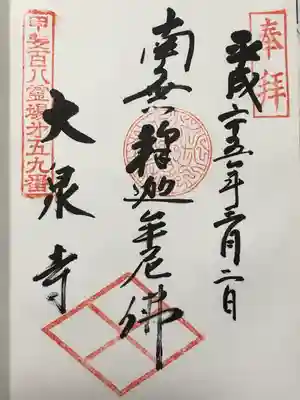 奉拝
平成二十五年三月二日
南無釋迦牟尼佛
甲斐百八霊場第五九番
大泉寺